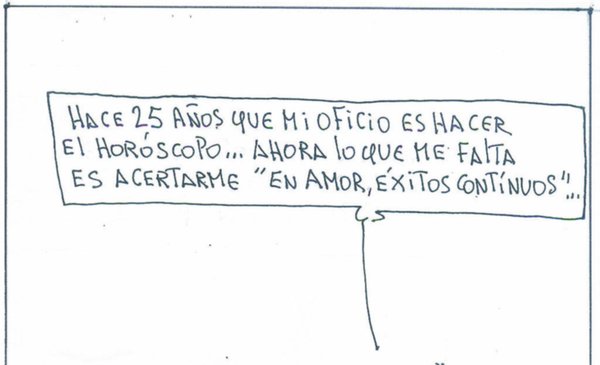 HACE 25 AÑOS QUE MI OFICIO ES HACER
El HORÓSCOPO... AHORA lO QUE ME FALTA
ES ACERTARME "EN AMOR, ÉXITOS CONTÍNUOS"...